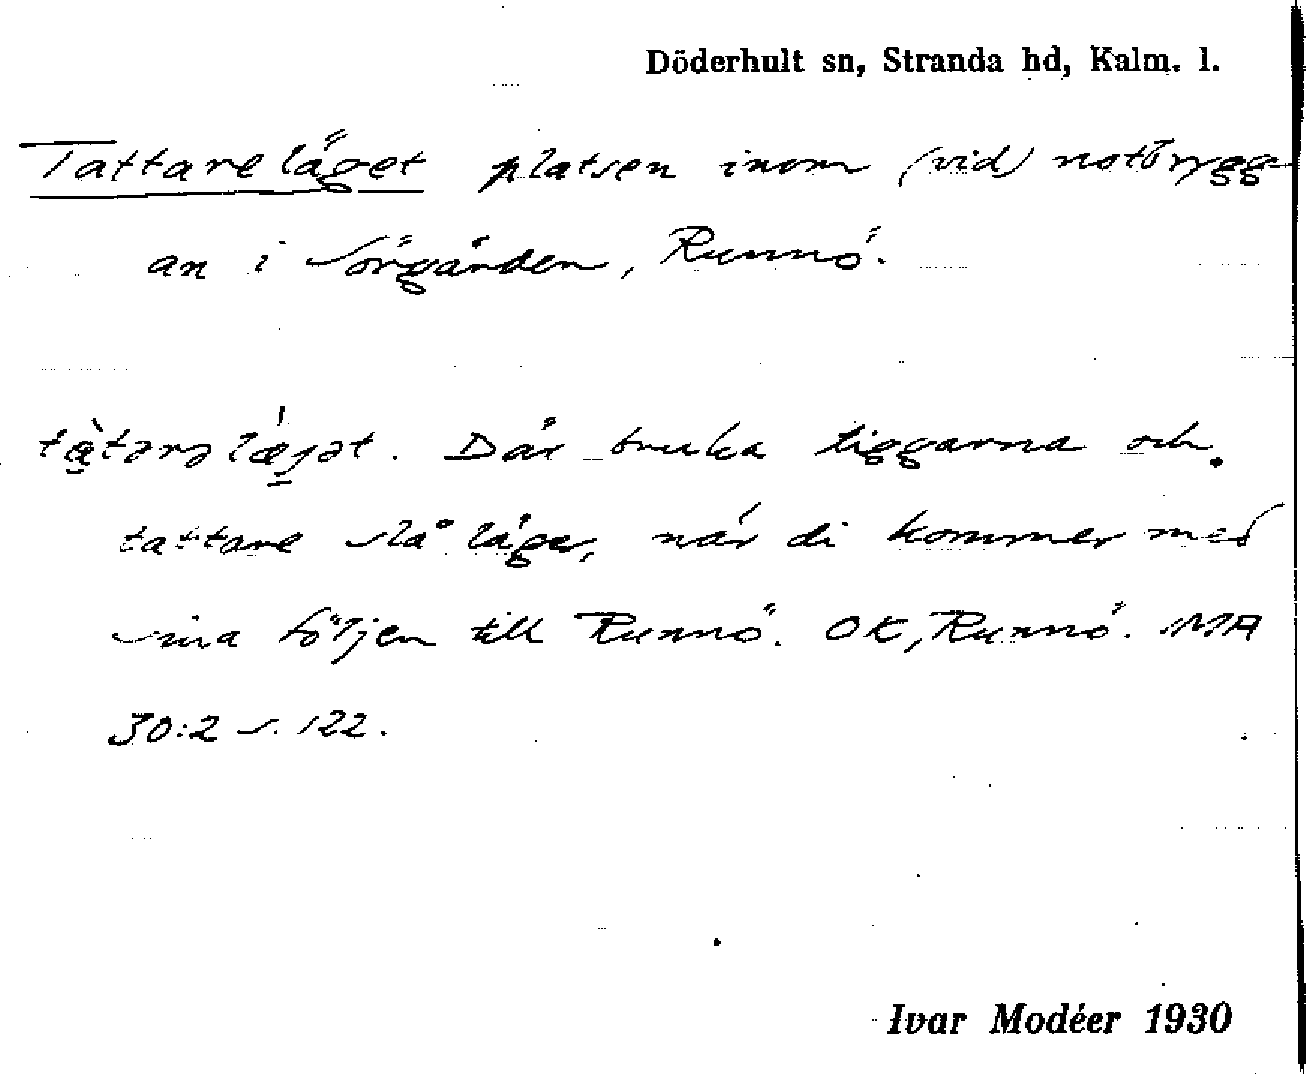 Döderhult sn, Stranda hd, Kalm. l.
Tattareläget platsen inom (vid) notbrygg-
an i Sörgården, Runnö.
tàtərəlǽgət. Där bruka tiggarna och
tattare slå läger, när di kommer med
sina följen till Runnö. OK, Runnö. MA
30:2 s. 122.
Ivar Modéer 1930